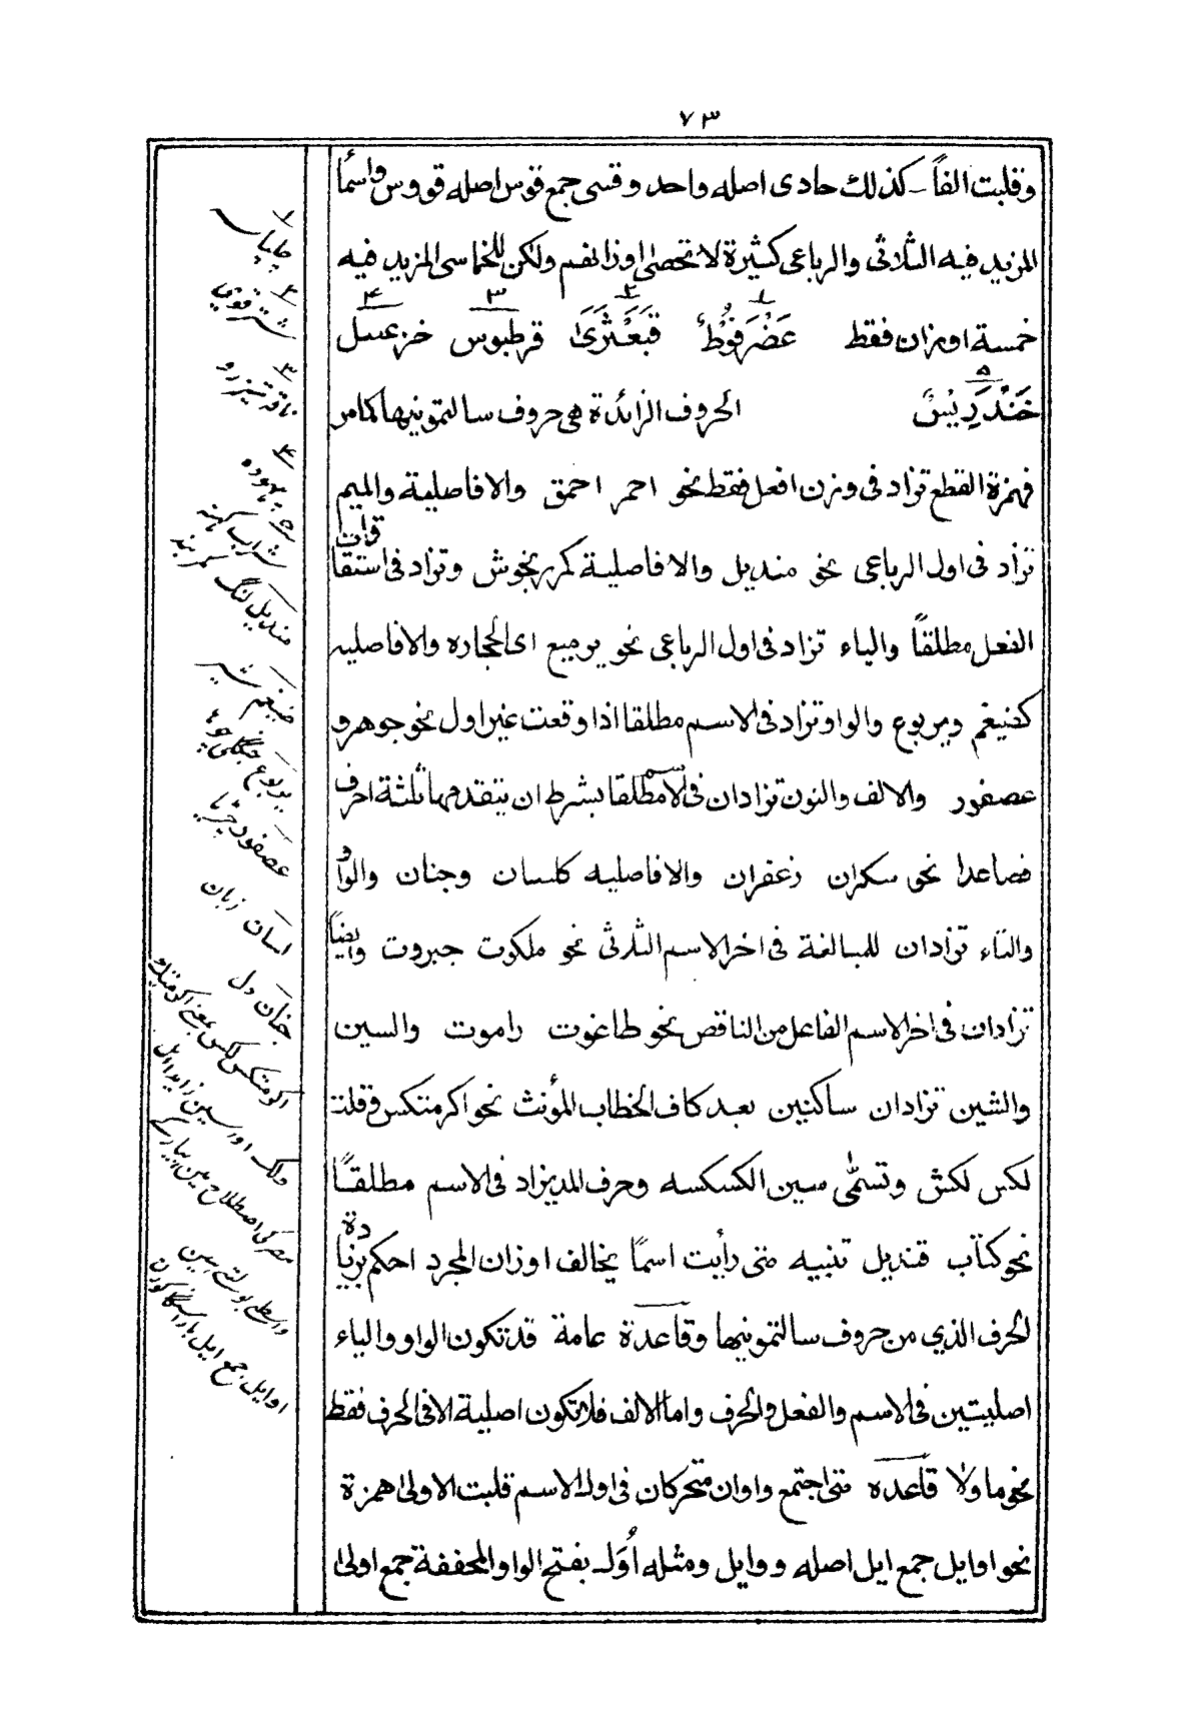 ٧٣
وقلبت الفاً ـ كذلك حادى اصله واحد وقسى جمع قوس اصله قووس واسماً
المزيد فيه الثلاثى والرباعى كثيرة لا تحصىٰ اوزانهم ولكن للخماسى المزيد فيه
خمسة اوزان فقط عَضْرَفُوْطٌ قَبَعْثَرَىٰ قرطبوس خزعبيل
خَنْدَرِيْسٌ الحروف الزائدة هى حروف سالتمونيها كما مر
فهمزة القطع تزاد فى وزن افعل فقط نحو احمر احمق والا فاصلية والميم
تزاد فى اول الرباعى نحو منديل والا فاصلية كمرزنجوش وتزاد فى استقاقات
الفعل مطلقاً والياء تزاد فى اول الرباعى نحو يرميع اى الحجاره والا فاصليه
كضيغم ويربوع والواو تزاد فى الاسم مطلقا اذا وقعت غير اول نحو جوهر و
عصفور والالف والنون تزادان فى الاسم مطلقا بشرط ان يتقدمها ثلثة احرف
فصاعدا نحو سكران زعفران والا فاصليه كلسان وجنان والواو
والتاء تزادان للمبالغة فى اخر الاسم الثلاثى نحو ملكوت جبروت وايضاً
تزادان فى اخر الاسم الفاعل من الناقص نحو طاغوت راموت والسين
والشين تزادان ساكنين بعد كاف الخطاب المؤنث نحو اكرمتكس وقلت
لكس لكش وتسمّٰى سين الكسكسه وحرف المد يزاد فى الاسم مطلقاً
نحو كتاب قنديل تنبيه متى رأيت اسمًا يخالف اوزان المجرد احكم بزيادة
الحرف الذي من حروف سالتمونيها وقاعدة عامة قد تكون الواو والياء
اصليتين فى الاسم والفعل والحرف واما الالف فلا تكون اصلية الا فى الحرف فقط
نحو ما ولا قاعده متى اجتمع واوان متحركان فى اول الاسم قلبت الاولىٰ همزة
نحو اوايل جمع ايل اصله ووايل ومثله اُوَل بفتح الواو المخففة جمع اولىٰ
١
چلپاسہ
٢
شتر قوي
٣
ناقہ تيز رو
٤
بيهوده
٥
شراب كہنہ
منديل لنگ كمربند
ضيغم شير
يربوع جنگلى چوہا
عصفور چڑيا
لسان زبان
جنان دل
اوايل جمع ايل